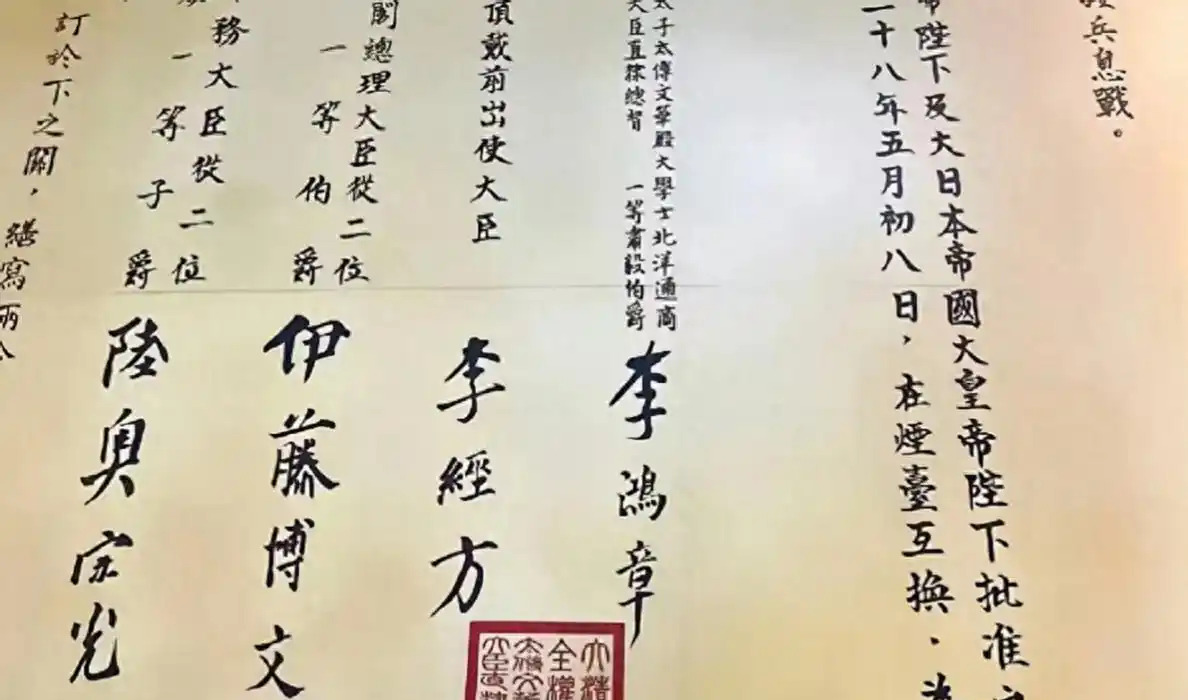 兵息戰。
帝陛下及大日本帝國大皇帝陛下批准
二十八年五月初八日，在煙臺互換。
太子太傅文華殿大學士北洋通商
大臣直隸總督 一等肅毅伯爵
李鴻章
頂戴前出使大臣
李經方
閣總理大臣從二位
一等伯爵
伊藤博文
務大臣從二位
一等子爵
陸奧宗光
訂於下之關，繕寫兩
大清
全權